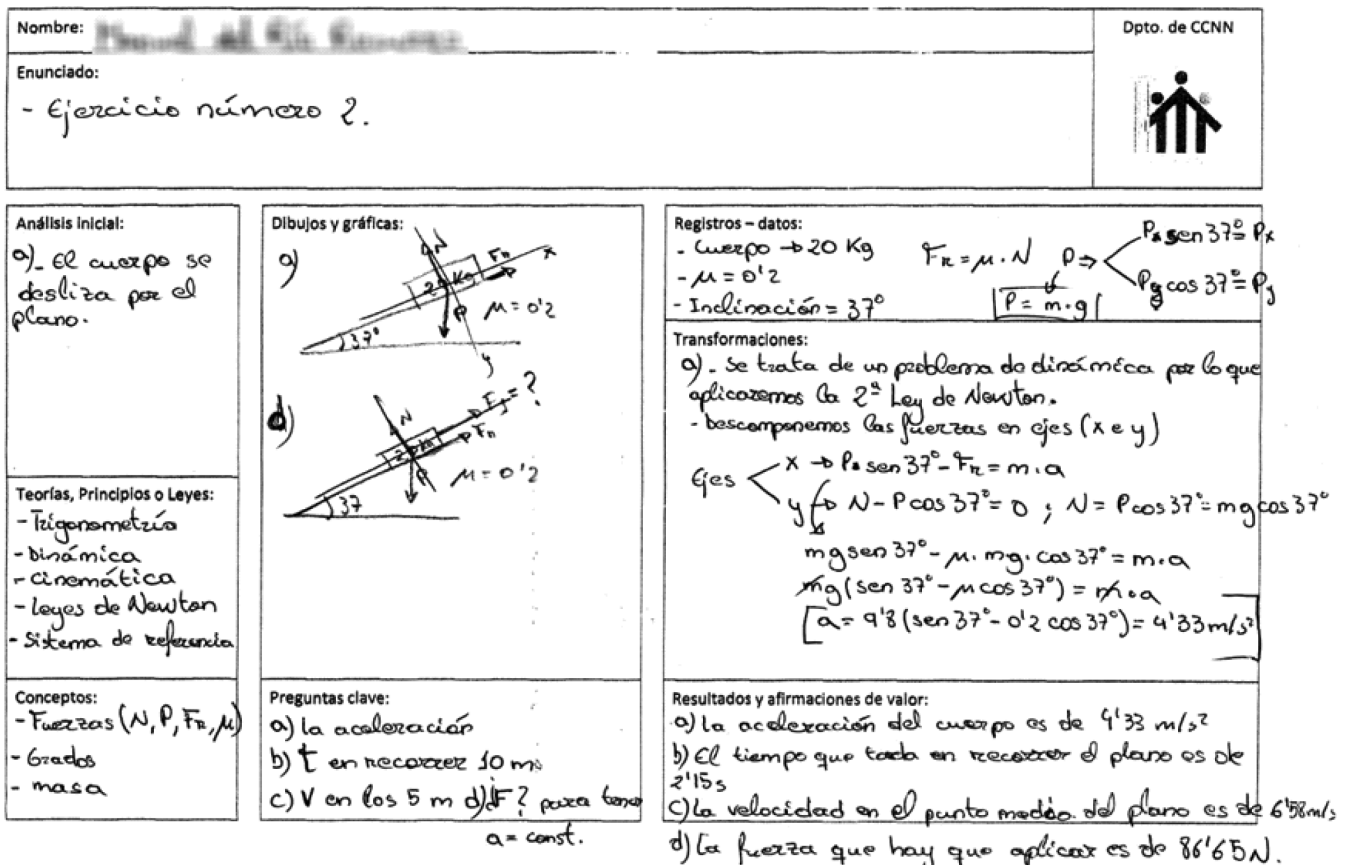 Nombre:
Dpto. de CCNN
Enunciado:
- Ejercicio número 2.
Análisis inicial:
a)- El cuerpo se
desliza por el
plano.
Teorías, Principios o Leyes:
- Trigonometría
- Dinámica
- Cinemática
- Leyes de Newton
- Sistema de referencia
Conceptos:
- Fuerzas (N, P, FR, μ)
- Grados
- masa
Dibujos y gráficas:
a)
N
FR
x
20 Kg
P
μ = 0'2
37°
y
d)
N
F = ?
FR
20 Kg
P
μ = 0'2
37
Preguntas clave:
a) la aceleración
b) t en recorrer 10 m
c) V en los 5 m d) ¿F? para tener
a = const.
Registros – datos:
- Cuerpo → 20 Kg
- μ = 0'2
- Inclinación = 37°
FR = μ · N
P ⇒
P sen 37° = Px
P cos 37° = Py
P = m · g
Transformaciones:
a) - Se trata de un problema de dinámica por lo que
aplicaremos la 2ª Ley de Newton.
- Descomponemos las fuerzas en ejes (x e y)
Ejes
x → P sen 37° - FR = m · a
y → N - P cos 37° = 0 ; N = P cos 37° = mg cos 37°
mg sen 37° - μ · mg · cos 37° = m · a
mg (sen 37° - μ cos 37°) = m · a
a = 9'8 (sen 37° - 0'2 cos 37°) = 4'33 m/s²
Resultados y afirmaciones de valor:
a) La aceleración del cuerpo es de 4'33 m/s²
b) El tiempo que tarda en recorrer el plano es de
2'15 s
c) La velocidad en el punto medio del plano es de 6'58 m/s
d) La fuerza que hay que aplicar es de 86'65 N.